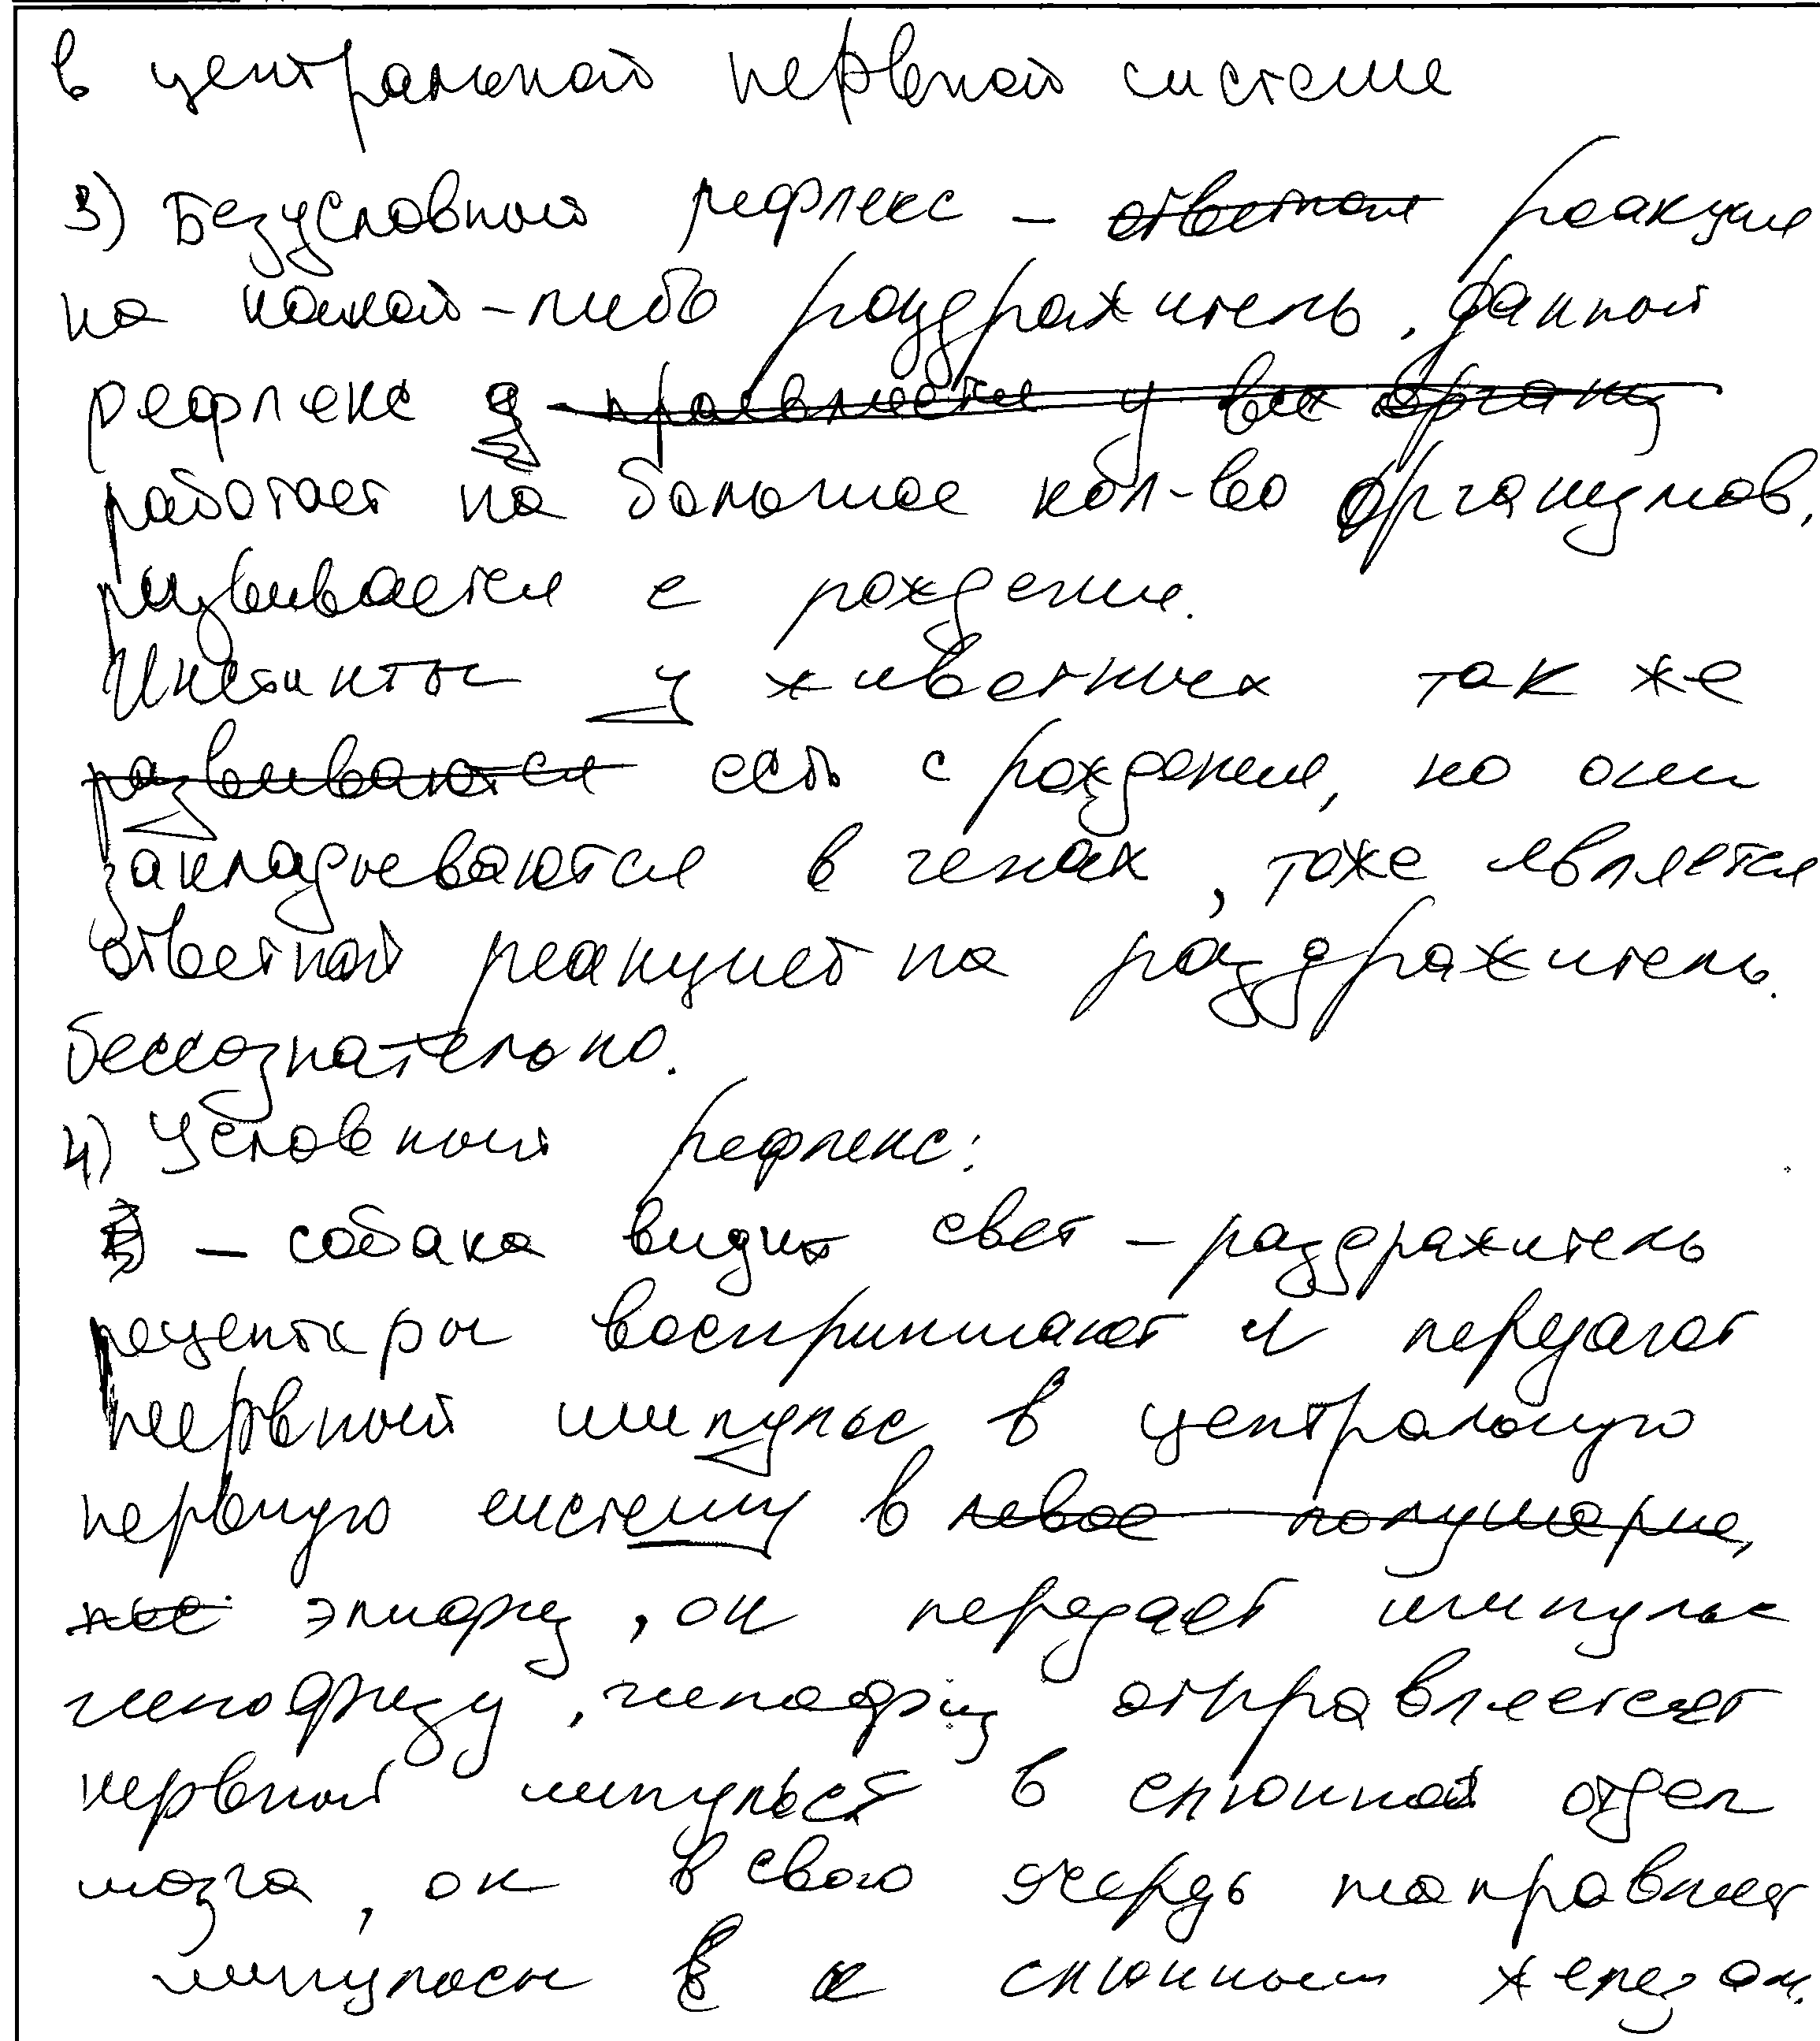 в центральной нервной системе
3) Безусловный рефлекс – ответная реакция
на какой-либо раздражитель, данный
рефлекс проявляется у все организ
работает на большое кол-во организмов,
развивается с рождения.
Инстинкты у животных так же
развиваются есть с рождения, но они
закладываются в генах, тоже является
ответной реакцией на раздражитель.
бессознательно.
4) Условный рефлекс:
– собака видит свет – раздражитель
рецепторы воспринимают и передают
нервный импульс в центральную
нервную систему в левое полушарие,
эпифиз, он передает импульс
гипофизу, гипофиз отправляет
нервный импульс в слюнной отдел
мозга, он в свою очередь направляет
импульсы к слюнным железам.